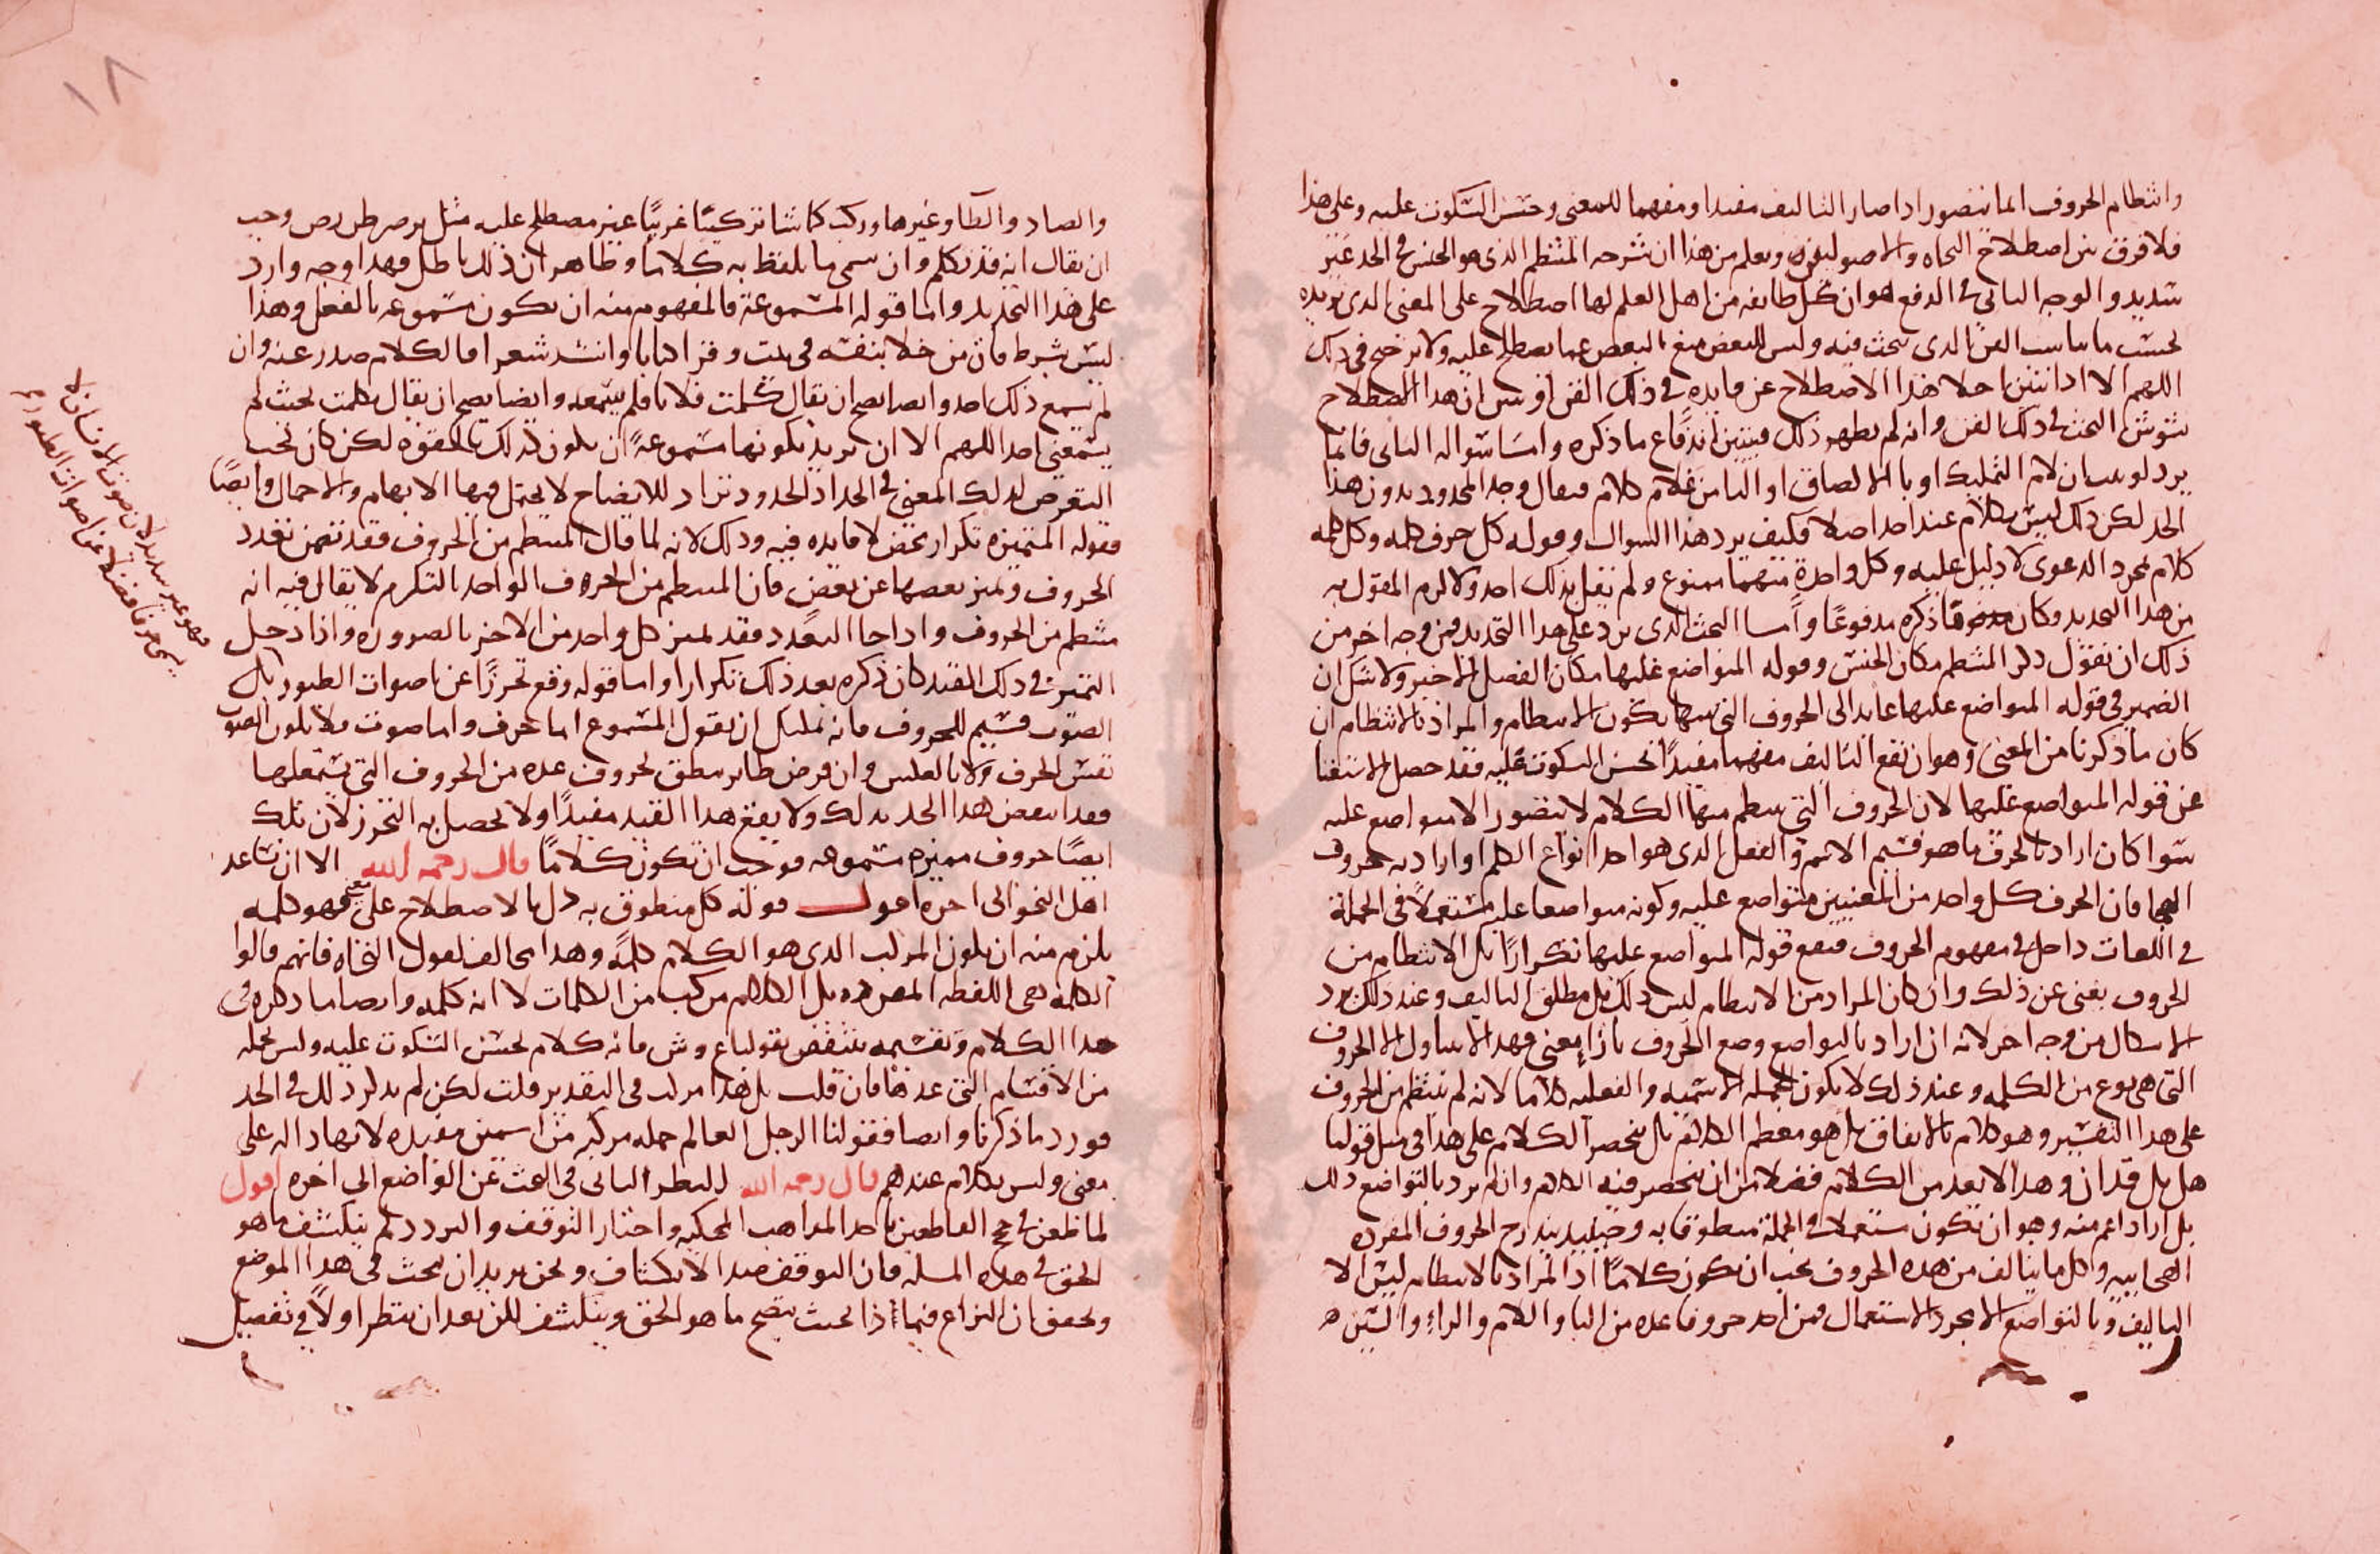 وانتظام الحروف انما يتصور اذا صار التاليف مفيدا ومفهما للمعنى وحسن السكوت عليه وعلى هذا
فلا فرق بين اصطلاح النحاه والاصوليين ويعلم من هذا ان شرحه المنتظم الذى هو الجنس فى الحد غير
سديد والوجه الثانى فى الدفع هو ان كل طايفه من اهل العلم لها اصطلاح على المعنى الذى تريده
بحسب ما يناسب الفن الذى يبحث فيه وليس للبعض منع البعض عما يصطلح عليه ولا ترجيح فى ذلك
اللهم الا اذا تبين اخلا هذا الاصطلاح عن فايده فى ذلك الفن او تبين ان هذا الاصطلاح
يشوش البحث فى ذلك الفن وانه لم يظهر ذلك فيتبين اندفاع ما ذكره واما سواله الثانى فانما
يرد لو بين ان لام التمليك او با الالصاق او اليا من غلام كلام فيقال وجد المحدود بدون هذا
الحد لكن ذلك ليس بكلام عند احد اصلا فكيف يرد هذا السوال وقوله كل حرف كلمه وكل كلمه
كلام مجرد الدعوى لا دليل عليه وكل واحدة منهما ممنوع ولم يقل بذلك احد ولا لزم القول به
من هذا التحديد وكان ما ذكره مدفوعا واما البحث الذى يرد على هذا التحديد فمن وجه اخر من
ذلك ان نقول ذكر المنتظم مكان الجنس وقوله المتواضع عليها مكان الفصل الاخير ولا شك ان
الضمير فى قوله المتواضع عليها عايد الى الحروف التى منها يكون الانتظام والمراد بالانتظام ان
كان ما ذكرنا من المعنى وهو ان يقع التاليف مفهما مفيدا لحسن السكوت عليه فقد حصل الاستغنا
عن قوله المتواضع عليها لان الحروف التى ينتظم منها الكلام لا يتصور الا متواضع عليه
سوا كان اراد بالحرف ما هو قسيم الاسم والفعل الذى هو احد انواع الكلم او اراد به حروف
الهجا فان الحرف كل واحد من المعنيين متواضع عليه وكونه متواضعا عليه مستعملا فى الجملة
فى اللغات داخل فى مفهوم الحروف فيقع قوله المتواضع عليها تكرارا بل الانتظام من
الحروف يغنى عن ذلك وان كان المراد من الانتظام ليس ذلك بل مطلق التاليف وعند ذلك يرد
الاشكال من وجه اخر لانه ان اراد بالتواضع وضع الحروف بازا معنى فهذا لا يتناول الا الحروف
التى هى نوع من الكلمه وعند ذلك لا يكون الجمله الاسميه والفعليه كلاما لانه لم ينتظم من الحروف
على هذا التفسير وهو كلام بالاتفاق بل هو معظم الكلام بل ينحصر الكلام على هذا فى مثل قولنا
هل بل قد ان وهذا لا يعد من الكلام فضلا من ان ينحصر فيه الكلام وان لم يرد بالتواضع ذلك
بل اراد اعم منه وهو ان تكون مستعملا فى الجملة منطوقا به وحينيذ يندرج الحروف المفرده
الهجاييه وكل ما يتالف من هذه الحروف يجب ان يكون كلاما اذ المراد بالانتظام ليس الا
التاليف وبالتواضع الا مجرد الاستعمال فمن اخذ حروفا عده من البا واللام والراء والسين
والصاد والطا وغيرها وركب كما شا تركيبا غريبا غير مصطلح عليه مثل وجب
ان يقال انه قد تكلم وان سمى ما يلفظ به كلاما وظاهر ان ذلك باطل فهذا وجه وارد
على هذا التحديد واما قوله المسموعة فالمفهوم منه ان يكون مسموعه بالفعل وهذا
ليس بشرط فان من خلا بنفسه فى بيت وقرا كتابا وانشد شعرا فالكلام صدر عنه وان
لم يسمع ذلك احد وايضا يصح ان يقال كلمت فلانا فلم يسمعه وايضا يصح ان يقال تكلمت بحيث لم
يسمعنى احد اللهم الا ان يريد بكونها مسموعة ان يكون كذلك بالقوه لكن كان يجب
التعرض لذلك المعنى فى الحد اذ الحدود تراد للايضاح لا يحتمل فيها الابهام والاجمال وايضا
فقوله المتميزه تكرار محض لا فايده فيه وذلك لانه لما قال المنتظم من الحروف فقد تضمن تعدد
الحروف وتميز بعضها عن بعض فان المنتظم من الحرف الواحد بالتكرم لا يقال فيه انه
منتظم من الحروف واذا جا التعدد فقد تميز كل واحد من الاخر بالضروره واذا دخل
التميز فى ذلك القيد كان ذكره بعد ذلك تكرارا واما قوله وقع تحرزا عن اصوات الطيور بل
الصوت قسيم للحروف فانه يمكنك ان تقول المسموع اما حرف واما صوت فلا يكون الصوت
نفس الحرف ولا بالعكس وان فرض طاير ينطق بحروف عده من الحروف التى يستعملها
فقد انتقض هذا الحد بذلك ولا يقع هذا القيد مفيدا ولا يحصل به التحرز لان تلك
ايضا حروف مميزه مسموعه فوجب ان تكون كلاما قال رحمه الله الا ان يساعد
اهل النحو الى اخره اقول قوله كل منطوق به دل بالاصطلاح على معنى فهو كلمه
يلزم منه ان يكون المركب الذى هو الكلام كلمة وهذا مخالف لقول النحاه فانهم قالوا
الكلمه هى اللفظه المفرده بل الكلام مركب من الكلمات لا انه كلمه وايضا ما ذكره فى
هذا الكلام وتقسيمه ينتقض بقولنا ع وش فانه كلام لحسن السكوت عليه وليس بجمله
من الاقسام التى عدها فان قلت بل هذا مركب فى التقدير قلت لكن لم يذكر ذلك فى الحد
فورد ما ذكرنا وايضا فقولنا الرجل العالم جمله مركبه من اسمين مفيده لانها داله على
معنى وليس بكلام عندهم قال رحمه الله النظر الثانى فى البحث عن الواضع الى اخره اقول
لما طعن فى حجج القاطعين باحد المذاهب المحكيه واختار التوقف والتردد لم ينكشف ما هو
الحق فى هذه المسله فان التوقف ضد الانكشاف ونحن نريد ان نبحث فى هذا الموضع
ونحقق ان النزاع فيما ذا بحيث يتضح ما هو الحق وينكشف لكن بعد ان ننظر اولا فى تفصيل
١٨
فهو غير سديد لان صوت الانسان لا
يسمى حرفا فضلا عن اصوات الطيور